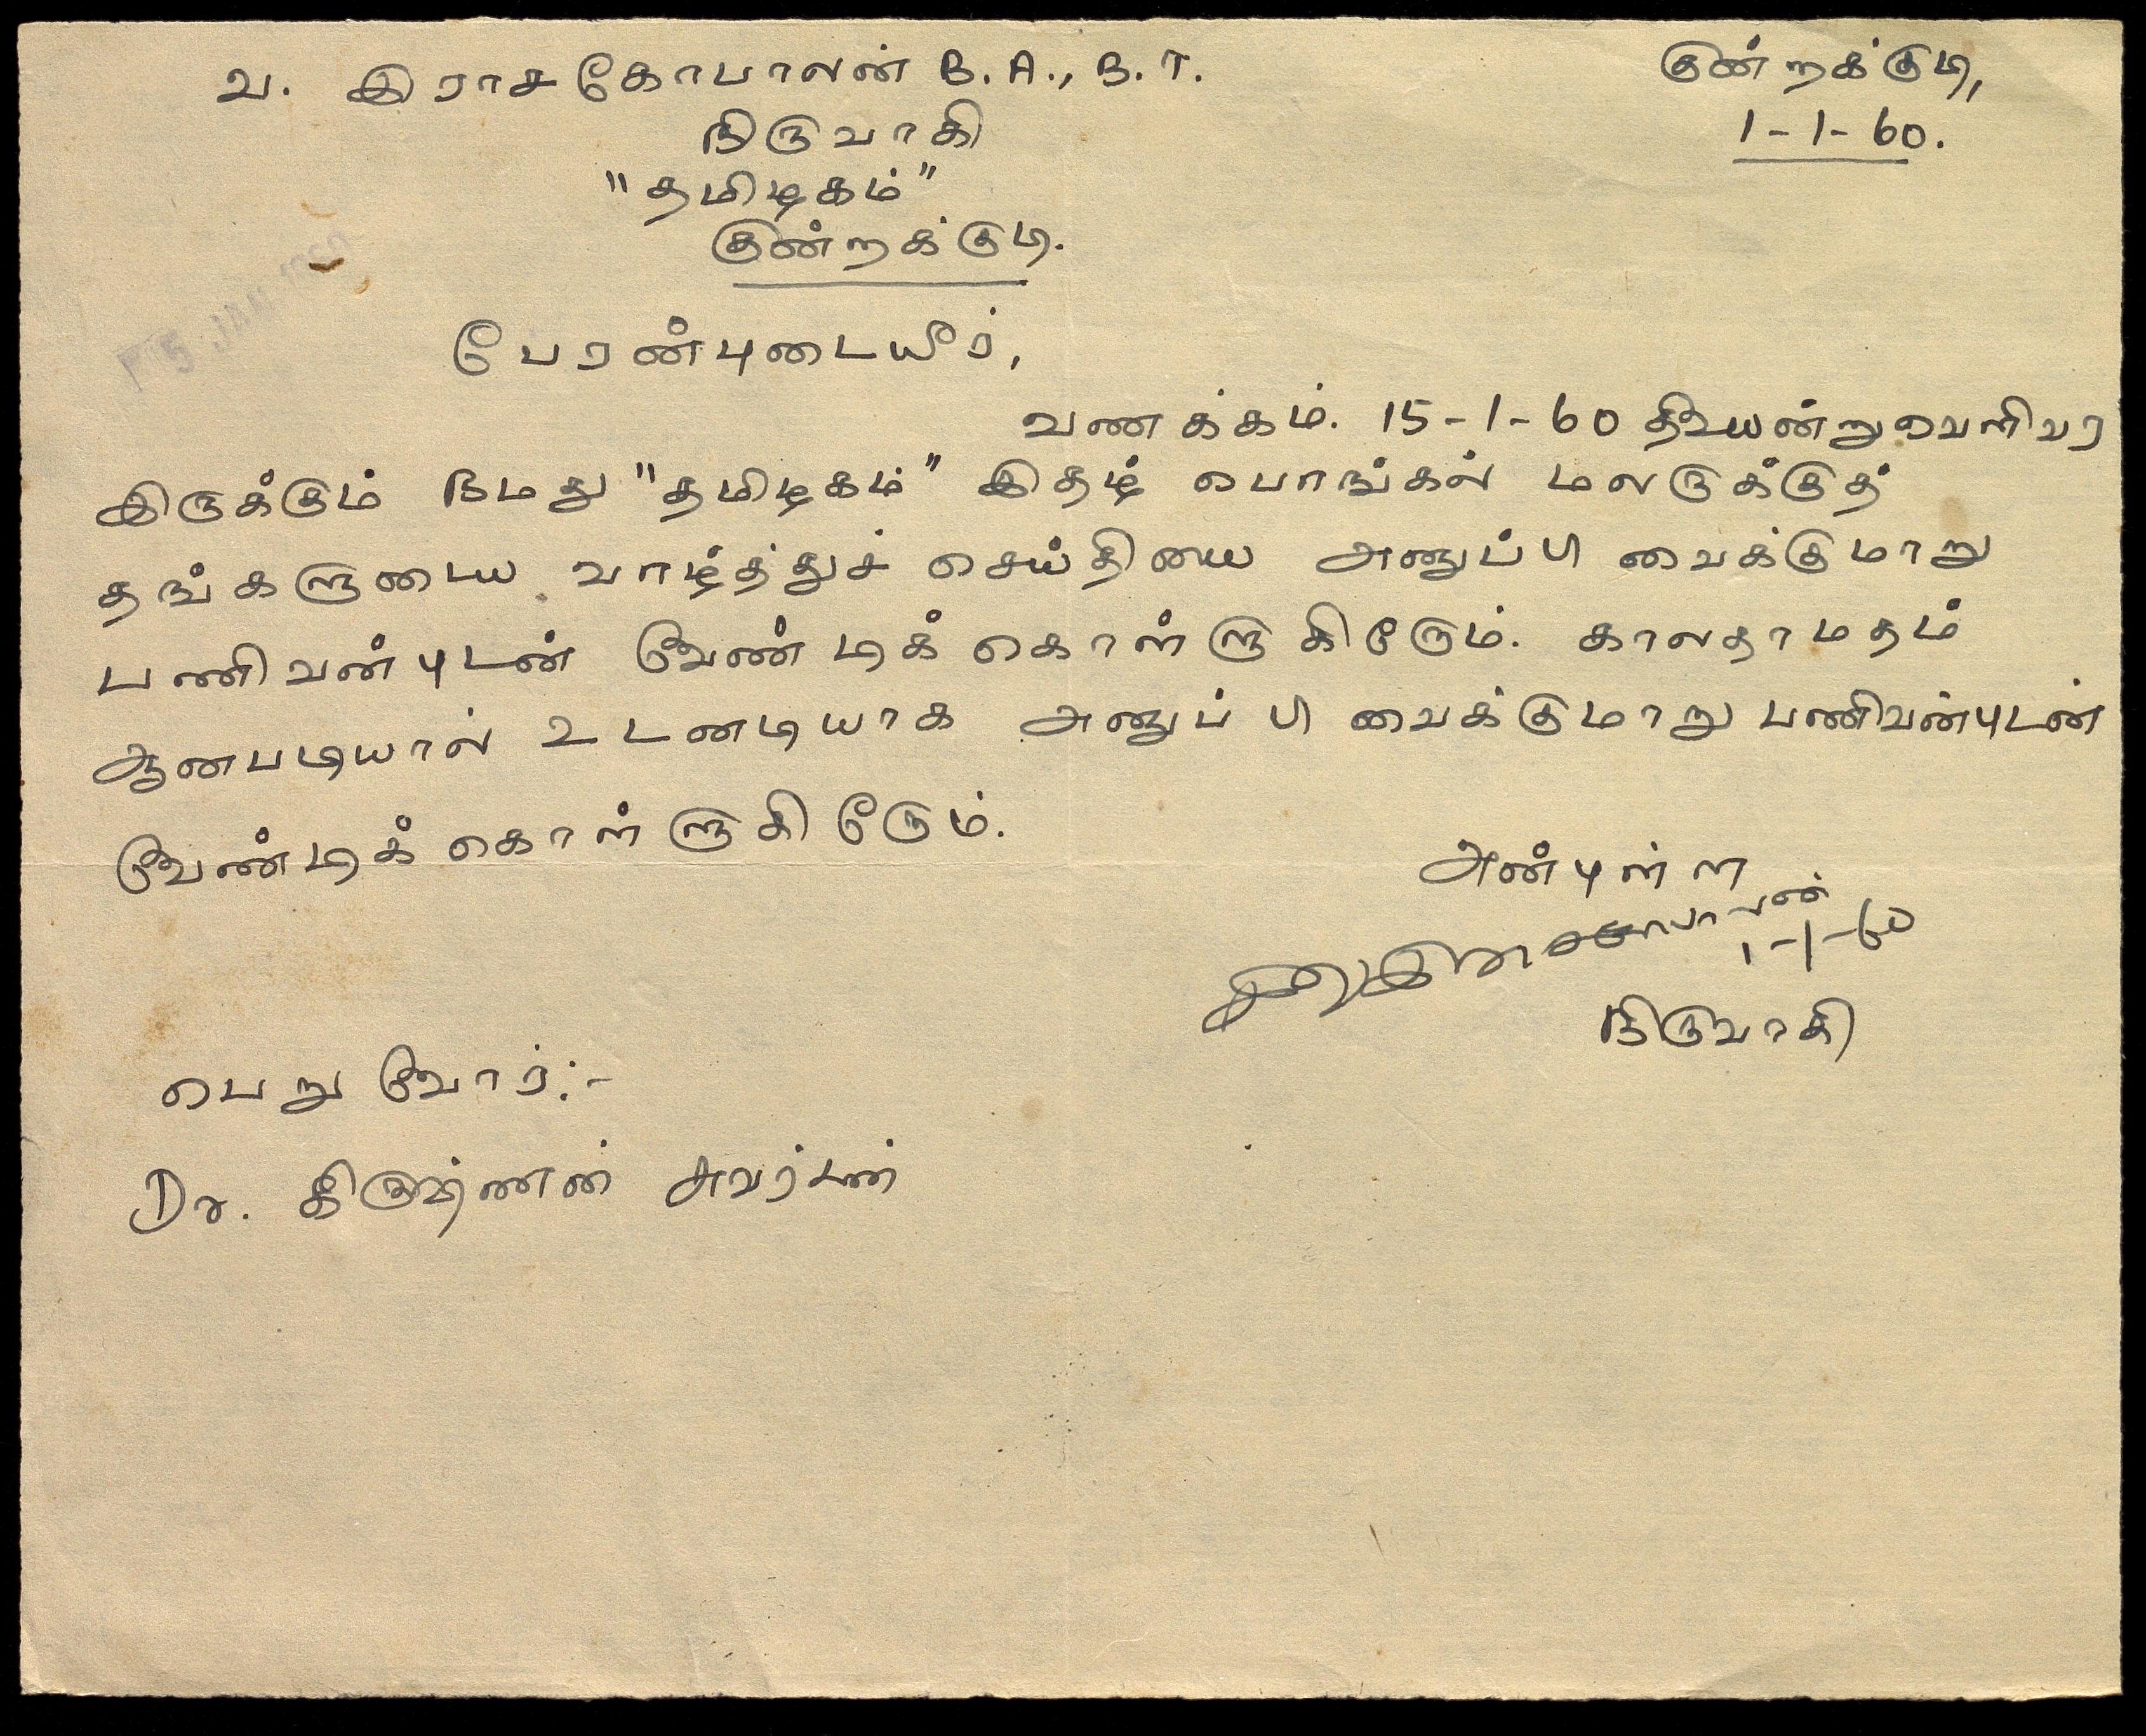 வ. இராசகோபாலன் B.A., B.T.
நிருவாகி
"தமிழகம்"
குன்றக்குடி.
குன்றக்குடி,
1-1-60.
பேரன்புடையீர்,
வணக்கம். 15-1-60 தியன்று வெளிவர
இருக்கும் நமது "தமிழகம்" இதழ் பொங்கல் மலருக்குத்
தங்களுடைய வாழ்த்துச் செய்தியை அனுப்பி வைக்குமாறு
பணிவன்புடன் வேண்டிக் கொள்ளுகிறோம். காலதாமதம்
ஆனபடியால் உடனடியாக அனுப்பி வைக்குமாறு பணிவன்புடன்
வேண்டிக் கொள்ளுகிறோம்.
அன்புள்ள
1-1-60
நிருவாகி
பெறுவோர்:-
Dr. கிருஷ்ணன் அவர்கள்